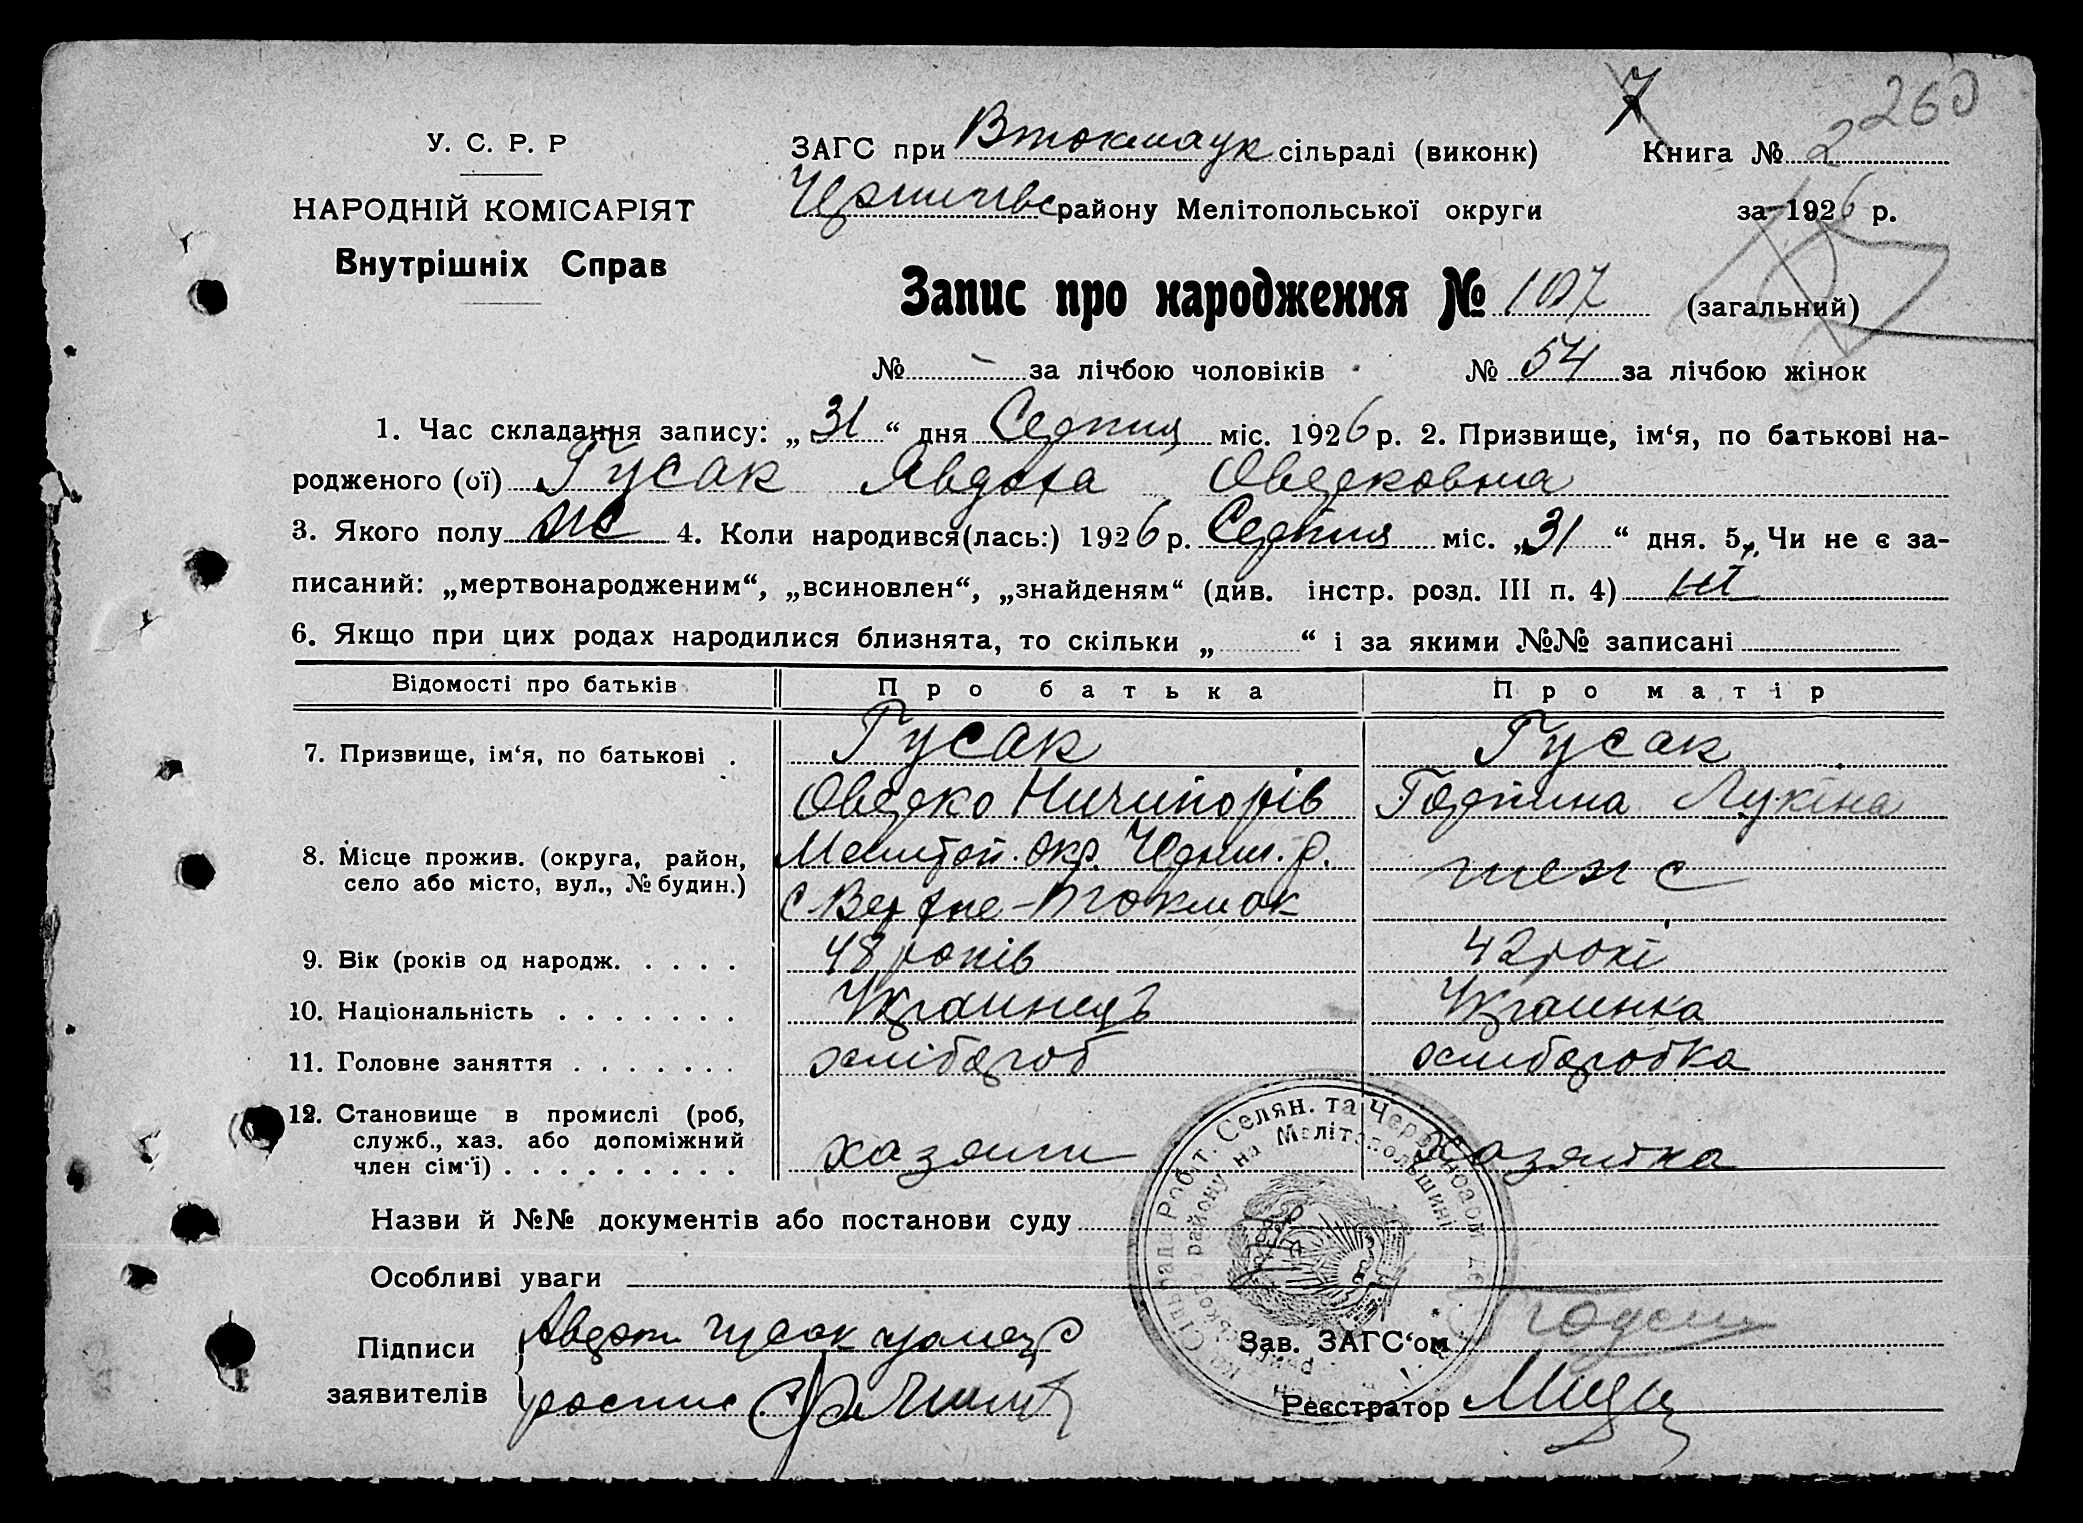 260
У. С. Р. Р
НАРОДНІЙ КОМІСАРІЯТ
Внутрішніх Справ
ЗАГС при Втокмацк сільраді (виконк) Книга № 2
району Мелітопольської округи за 1926 р.
Запис про народження № 107 (загальний)
№ - за лічбою чоловіків № 54 за лічбою жінок
1. Час складання запису: „31“ дня Серпня міс. 1926 р. 2. Призвище, ім‘я, по батькові на-
родженого (ої) Гусак Явдоха Овдековна
3. Якого полу жс 4. Коли народився(лась:) 1926 р. Серпня міс. „31“ дня. 5. Чи не є за-
писаний: „мертвонародженим“, „всиновлен“, „знайденям“ (див. інстр. розд. III п. 4) ні
6. Якщо при цих родах народилися близнята, то скільки „ “ і за якими №№ записані
Відомості про батьків Про батька Про матір
7. Призвище, ім‘я, по батькові . Гусак Гусак
Овдеко Ничипорів Горпина Лукіна
8. Місце прожив. (округа, район, Мелитоп. окр. Черниг. р.
село або місто, вул., № будин.) с Верхне-Токмак
9. Вік (років од народж. . . . . 48 років 42 років
10. Національність . . . . . . . Украинець Украинка
11. Головне заняття . . . . . . . хлібороб хлиборобка
12. Становище в промислі (роб,
служб., хаз. або допоміжний хазяин хазяйка
член сім‘ї) . . . . . . . . .
Назви й №№ документів або постанови суду
Особливі уваги
Підписи Авдот Гусак
заявителів роспис
Зав. ЗАГС‘ом
Реєстратор
Робіт. Селян. та Червоноарм. Де
району на Мелітопольшині